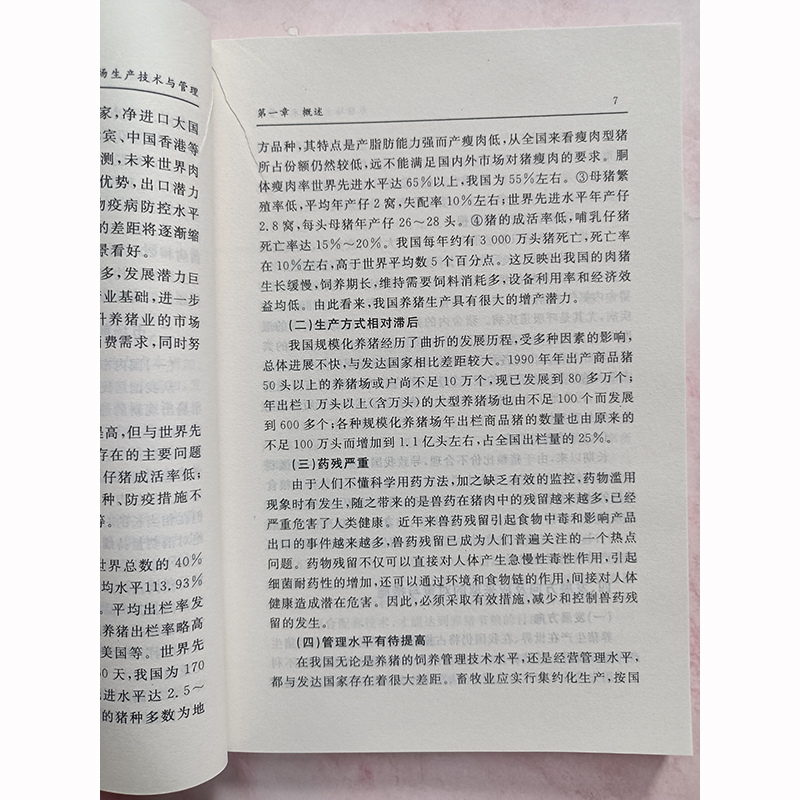 场生产技术与管理
家，净进口大国
宾、中国香港等
测，未来世界肉
优势，出口潜力
物疫病防控水平
的差距将逐渐缩
景看好。
多，发展潜力巨
业基础，进一步
升养猪业的市场
消费需求，同时努
提高，但与世界先
存在的主要问题
仔猪成活率低；
种、防疫措施不
等。
世界总数的 40%
均水平113.93%
。平均出栏率发
养猪出栏率略高
美国等。世界先
0 天，我国为 170
进水平达 2.5～
的猪种多数为地
第一章 概述 7
方品种，其特点是产脂肪能力强而产瘦肉低，从全国来看瘦肉型猪
所占份额仍然较低，远不能满足国内外市场对猪瘦肉的要求。胴
体瘦肉率世界先进水平达 65%以上，我国为 55%左右。③母猪繁
殖率低，平均年产仔 2 窝，失配率 10%左右；世界先进水平年产仔
2.8 窝，每头母猪年产仔 26～28 头。④猪的成活率低，哺乳仔猪
死亡率达 15%～20%。我国每年约有 3 000 万头猪死亡，死亡率
在 10%左右，高于世界平均数 5 个百分点。这反映出我国的肉猪
生长缓慢，饲养期长，维持需要饲料消耗多，设备利用率和经济效
益均低。由此看来，我国养猪生产具有很大的增产潜力。
(二)生产方式相对滞后
我国规模化养猪经历了曲折的发展历程，受多种因素的影响，
总体进展不快，与发达国家相比差距较大。1990 年年出产商品猪
50 头以上的养猪场或户尚不足 10 万个，现已发展到 80 多万个；
年出栏 1 万头以上(含万头)的大型养猪场也由不足 100 个而发展
到 600 多个；各种规模化养猪场年出栏商品猪的数量也由原来的
不足 100 万头而增加到 1.1 亿头左右，占全国出栏量的 25%。
(三)药残严重
由于人们不懂科学用药方法，加之缺乏有效的监控，药物滥用
现象时有发生，随之带来的是兽药在猪肉中的残留越来越多，已经
严重危害了人类健康。近年来兽药残留引起食物中毒和影响产品
出口的事件越来越多，兽药残留已成为人们普遍关注的一个热点
问题。药物残留不仅可以直接对人体产生急慢性毒性作用，引起
细菌耐药性的增加，还可以通过环境和食物链的作用，间接对人体
健康造成潜在危害。因此，必须采取有效措施，减少和控制兽药残
留的发生。
(四)管理水平有待提高
在我国无论是养猪的饲养管理技术水平，还是经营管理水平，
都与发达国家存在着很大差距。畜牧业应实行集约化生产，按国